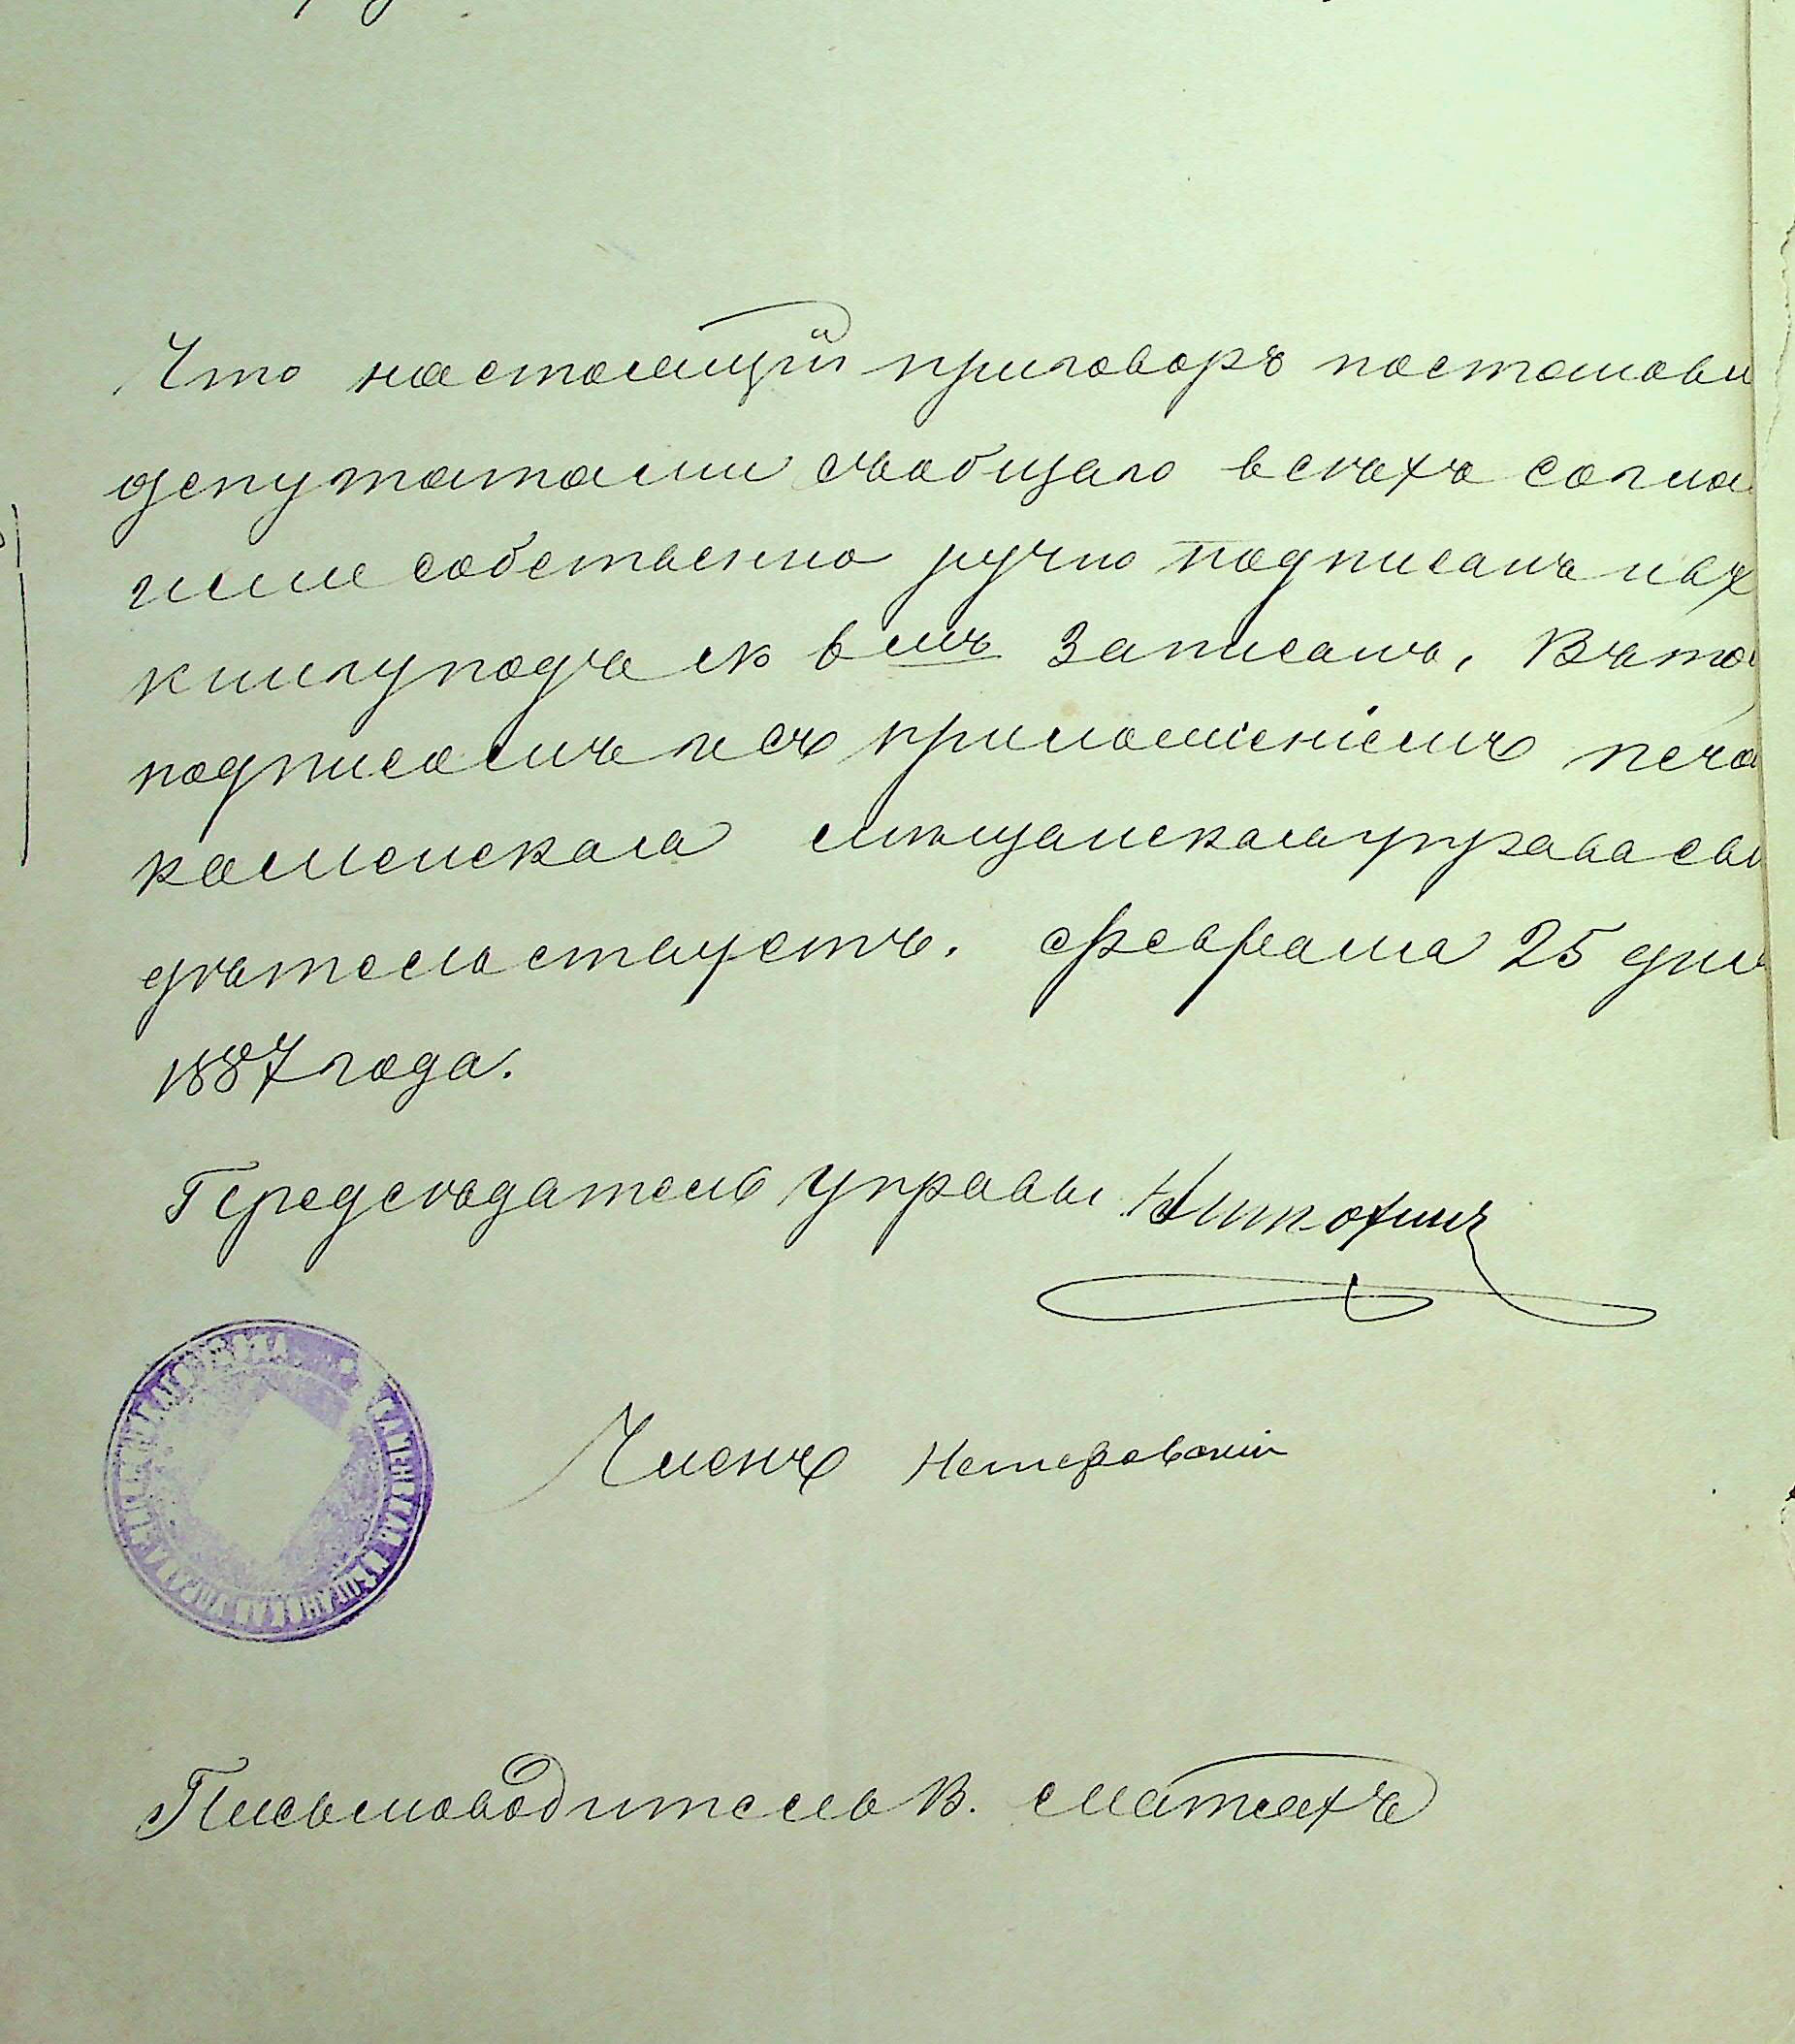 Что настоящій приговоръ постанови
депутатами съобщаго всѣхъ согла
ими собственно ручно подписанъ и въ
книгу подъ № 6 мъ Записанъ, Въ то
подписомъ и съ приложеніемъ печа
каменская мѣщанская управа сви
дѣтельствуетъ. февраля 25 дня
1887 года.
Предсѣдатель управы
Членъ Нетеровскій
КАМЕНСКАЯ МѢЩАНСКАЯ УПРАВА
Письмоводитель В.